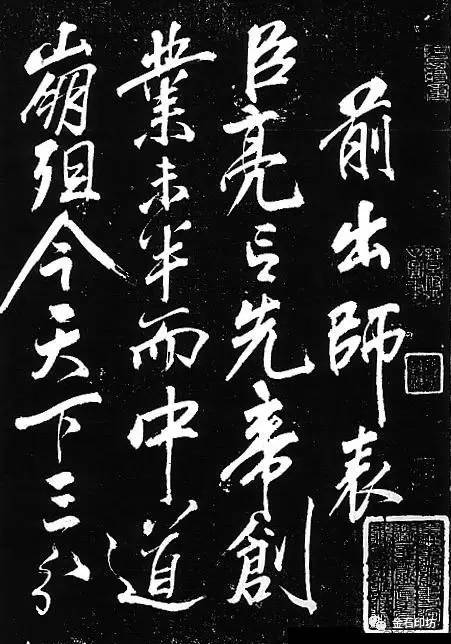 前出師表
臣亮言先帝創
業未半而中道
崩殂今天下三分
金石印坊